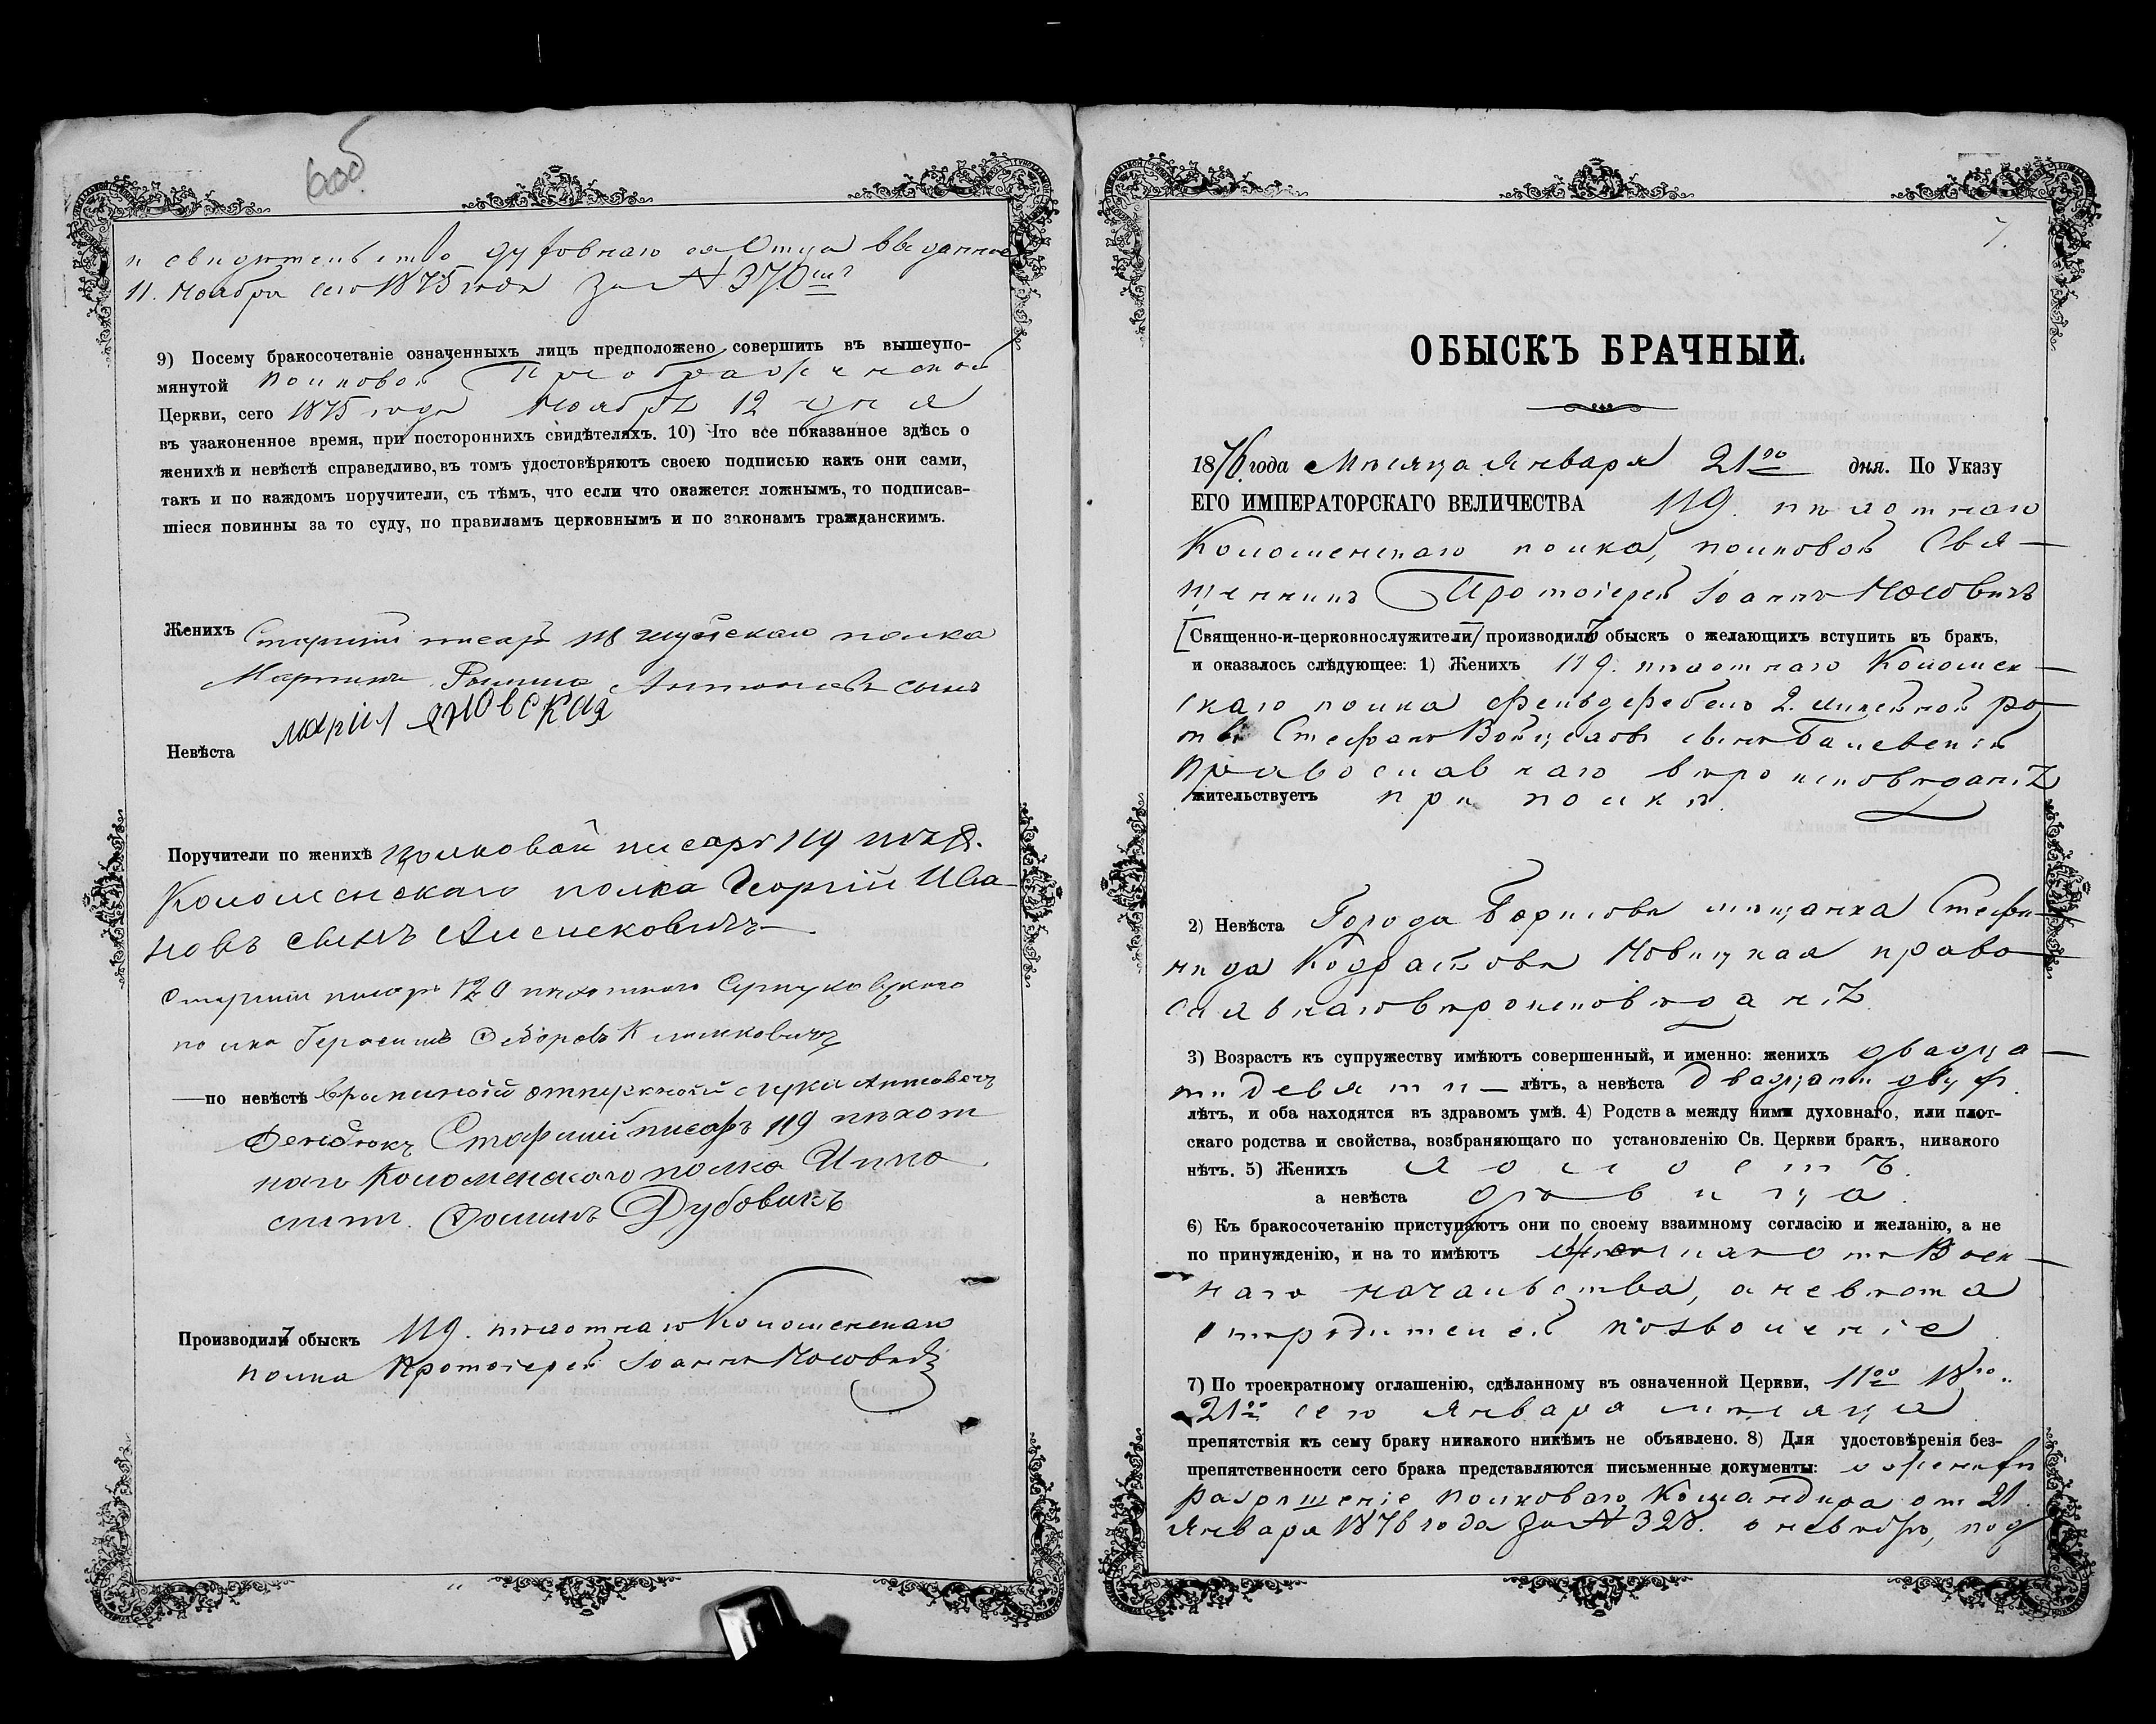 6 об
и свидѣтельство духовнаго ея Отца выданное
11. Ноября сего 1875 года за № 370
9) Посему бракосочетаніе означенныхъ лицъ предположено совершить въ вышеупо-
мянутой полковой Преображенской
Церкви, сего 1875 года Ноября 12 дня
въ узаконенное время, при постороннихъ свидѣтеляхъ. 10) Что все показанное здѣсь о
женихѣ и невѣстѣ справедливо, въ томъ удостовѣряютъ своею подписью какъ они сами,
такъ и по каждомъ поручители, съ тѣмъ, что если что окажется ложнымъ, то подписав-
шіеся повинны за то суду, по правиламъ церковнымъ и по законамъ гражданскимъ.
Женихъ Старшій писарь 118 Шуйскаго полка
Мартинъ Антоновъ сынъ
Невѣста Марія Яновская
Поручители по женихѣ полковой писарь 119 пѣх.
Коломенскаго полка Георгій Ива-
новъ сынъ
Старшій писарь 120 пѣхотнаго Серпуховскаго
полка Герасимъ Ѳедоровъ Климковичъ
— по невѣстѣ
Старшій писарь 119 пѣхот
наго Коломенскаго полка
Ѳоминъ Дубовикъ
Производилъ обыскъ 119. пѣхотнаго Коломенскаго
полка Протоіерей Іоаннъ Носовичъ
7.
ОБЫСКЪ БРАЧНЫЙ.
1876 года Мѣсяца Января 21го дня. По Указу
ЕГО ИМПЕРАТОРСКАГО ВЕЛИЧЕСТВА 119. пѣхотнаго
Коломенскаго полка, полковой Свя-
щенникъ Протоіерей Іоаннъ Носовичъ
[Священно-и-церковнослужители] производилъ обыскъ о желающихъ вступить въ бракъ,
и оказалось слѣдующее: 1) Женихъ 119. пѣхотнаго Коломен-
скаго полка фельдфебель 2. линейной ро-
ты Стефанъ сынъ
Православнаго вѣроисповѣданія
жительствуетъ при полкѣ.
2) Невѣста Города Борисова мѣщанка Стефа-
нида Новицкая право-
славнаго вѣроисповѣданія
3) Возрастъ къ супружеству имѣютъ совершенный, и именно: женихъ двадца-
ти девяти — лѣтъ, а невѣста двадцати двухъ
лѣтъ, и оба находятся въ здравомъ умѣ. 4) Родства между ними духовнаго, или плот-
скаго родства и свойства, возбраняющаго по установленію Св. Церкви бракъ, никакого
нѣтъ. 5) Женихъ холостъ.
а невѣста дѣвица.
6) Къ бракосочетанію приступаютъ они по своему взаимному согласію и желанію, а не
по принужденію, и на то имѣютъ женихъ отъ Воен-
наго начальства, а невѣста
отъ родителей позволеніе
7) По троекратному оглашенію, сдѣланному въ означенной Церкви, 11го 18го
21го сего Января мѣсяца
препятствія къ сему браку никакого никѣмъ не объявлено. 8) Для удостовѣренія без-
препятственности сего брака представляются письменные документы: о женихѣ
разрѣшеніе полковаго Командира отъ 21.
Января 1876 года за № 328. о невѣстѣ, под